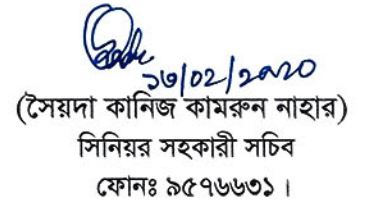 (সৈয়দা কানিজ কামরুন নাহার)
সিনিয়র সহকারী সচিব
ফোনঃ ৯৫৭৬৬৩১ ।